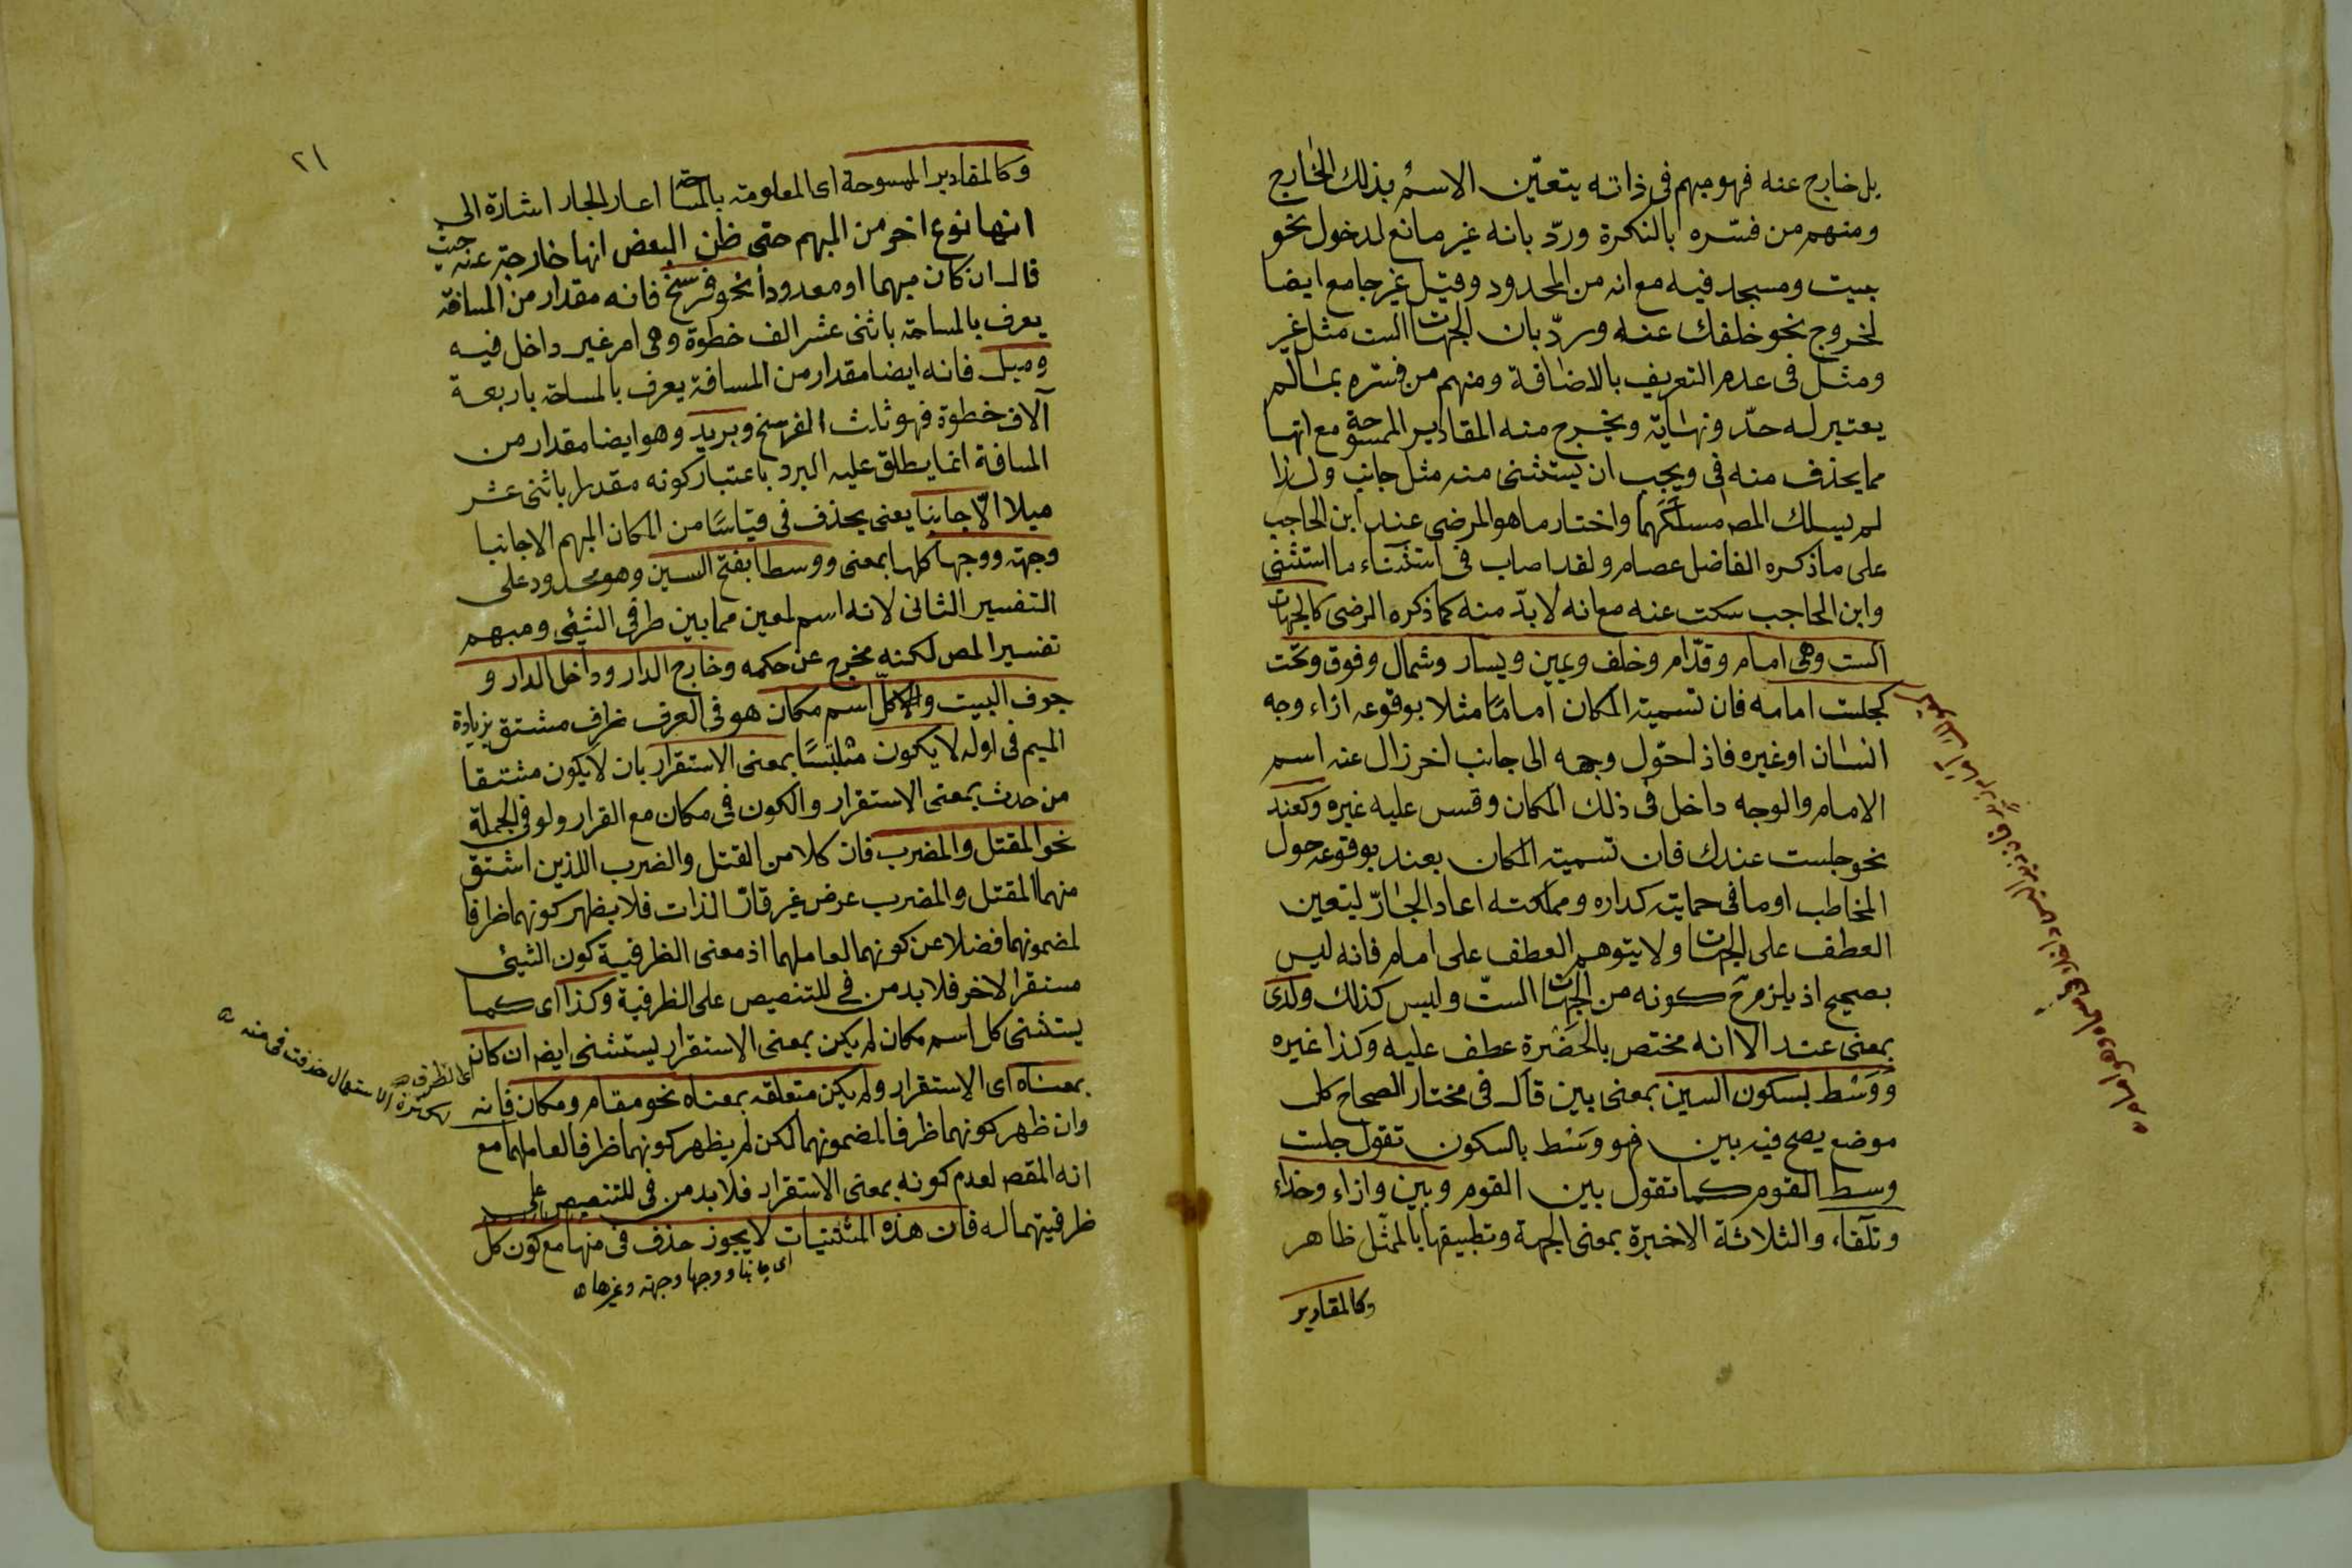 بل خارج عنه فهو مبهم فى ذاته يتعيّن الاسم بذلك الخارج
ومنهم من فسّره بالنكرة وردّ بانه غير مانع لدخول نحو
بيت ومسجد فيه مع انه من المحدود وقيل غير جامع ايضا
لخروج نحو خلفك عنه وردّ بان الجهات الست مثل غير
ومثل فى عدم التعريف بالاضافة ومنهم من فسّره بما لم
يعتبر له حدّ ونهاية ويخرج منه المقادير الممسوحة مع انها
مما يحذف منه فى ويجب ان يستثنى منه مثل جانب ولذا
لم يسلك المص مسلكهما واختار ما هو المرضى عند ابن الحاجب
على ما ذكره الفاضل عصام ولقد اصاب فى استثناء ما استثنى
وابن الحاجب سكت عنه مع انه لا بدّ منه كما ذكره الرضى كالجهات
الست وهى امام وقدّام وخلف ويمين ويسار وشمال وفوق وتحت
كجلست امامه فان تسمية المكان اماما مثلا بوقوعه ازاء وجه
انسان او غيره فاذا حوّل وجهه الى جانب اخر زال عنه اسم
الامام والوجه داخل فى ذلك المكان وقس عليه غيره وكعند
نحو جلست عندك فان تسمية المكان بعند بوقوعه حول
المخاطب او ما فى حمايته كداره ومملكته اعاد الجارّ ليتعين
العطف على الجهات ولا يتوهم العطف على امام فانه ليس
بصحيح اذ يلزم ح كونه من الجهات الستّ وليس كذلك ولدى
بمعنى عند الا انه مختص بالحَضْرةِ عطف عليه وكذا غيره
ووَسْط بسكون السين بمعنى بين قال فى مختار الصحاح كل
موضع يصح فيه بين فهو وسْط بالسكون تقول جلست
وسط القوم كما تقول بين القوم وبين وازاء وحذاء
وتلقاء والثلاثة الاخيرة بمعنى الجهة وتطبيقها بالممثّل ظاهر
وكالمقادير
٢١
وكالمقادير الممسوحة اى المعلومة بالمساحة اعاد الجار اشارة الى
انها نوع اخر من المبهم حتى ظن البعض انها خارجة عنه حيث
قال ان كان مبهما او معدوداً نحو فرسخ فانه مقدار من المسافة
يعرف بالمساحة باثنى عشر الف خطوة وهى امر غير داخل فيه
وميل فانه ايضا مقدار من المسافة يعرف بالمساحة باربعة
آلاف خطوة فهو ثلث الفرسخ وبريد وهو ايضا مقدار من
المسافة انما يطلق عليه البرد باعتبار كونه مقدرا باثنى عشر
ميلا الّا جانبا يعنى يحذف فى قياسًا من المكان المبهم الا جانبا
وجهة ووجها كلها بمعنى ووسطا بفتح السين وهو محدود على
التفسير الثانى لانه اسم لمعين مما بين طرفى الشئ ومبهم
تفسير المص لكنه مخرج عن حكمه وخارج الدار وداخل الدار و
جوف البيت والا كلّ اسم مكان هو فى العرف ظرف مشتق بزيادة
الميم فى اوله لا يكون متلبّسًا بمعنى الاستقرار بان لا يكون مشتقا
من حدث بمعنى الاستقرار والكون فى مكان مع القرار ولو فى الجملة
نحو المقتل والمضرب فان كلا من القتل والضرب اللذين اشتق
منهما المقتل والمضرب عرض غير قارّ الذات فلا يظهر كونهما ظرفا
لمضمونهما فضلا عن كونهما لعاملهما اذ معنى الظرفية كون الشئ
مستقرا لاخر فلا بد من فى للتنصيص على الظرفية وكذا اى كما
يستثنى كل اسم مكان لم يكن بمعنى الاستقرار يستثنى ايض ان كان
بمعناه اى الاستقرار ولم يكن متعلقه بمعناه نحو مقام ومكان فانه
وان ظهر كونهما ظرفا لمضمونهما لكن لم يظهر كونهما ظرفا لعاملهما مع
انه المقص لعدم كونه بمعنى الاستقرار فلا بد من فى للتنصيص على
ظرفيتهما له فان هذه المستثنيات لا يجوز حذف فى منها مع كون كل
اى جانبا ووجها وجهة وغيرها
اى الظرف
لكثرة الاستعمال حذفت فى منه